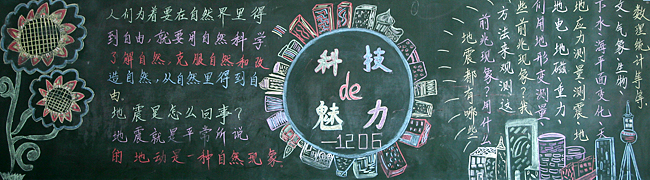 人们为着要在自然界里得
到自由，就要用自然科学
了解自然，克服自然和改
造自然，从自然里得到自
由。
地震是怎么回事？
地震就是平常所说
的地动是一种自然现象
科技
de
魅力
—1206
地震都有哪些
前兆现象？用什么
方法来观测这
些前兆现象？我
们用地形变测量、
地电地磁重力
地应力测量测震地
下水海平面变化天
文、气象生物
数理统计等等。